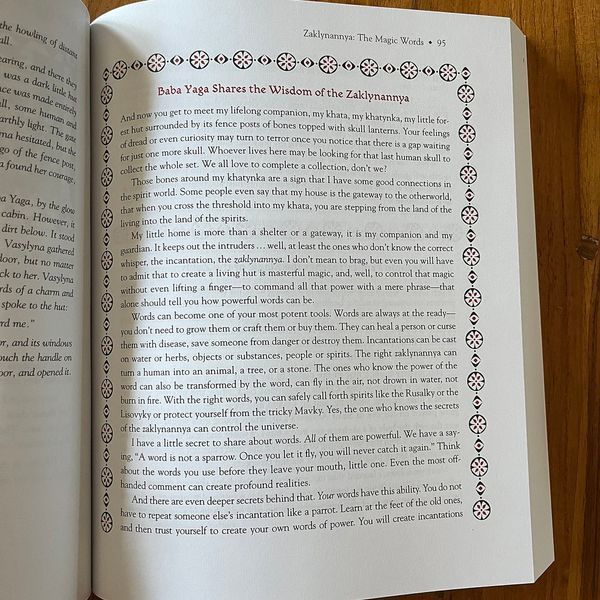 the howling of distant
all.
earing, and there they
was a dark little hut
ce was made entirely
ll, some human and
arthly light. The gate
na hesitated, but the
go of the fence post,
a found her courage,
a Yaga, by the glow
cabin. However, it
dirt below. It stood
Vasylyna gathered
door, but no matter
ck to her. Vasylyna
rds of a charm and
spoke to the hut:
rd me."
or, and its windows
ouch the handle on
oor, and opened it.
Zaklynannya: The Magic Words • 95
Baba Yaga Shares the Wisdom of the Zaklynannya
And now you get to meet my lifelong companion, my khata, my khatynka, my little for-
est hut surrounded by its fence posts of bones topped with skull lanterns. Your feelings
of dread or even curiosity may turn to terror once you notice that there is a gap waiting
for just one more skull. Whoever lives here may be looking for that last human skull to
collect the whole set. We all love to complete a collection, don't we?
Those bones around my khatynka are a sign that I have some good connections in
the spirit world. Some people even say that my house is the gateway to the otherworld,
that when you cross the threshold into my khata, you are stepping from the land of the
living into the land of the spirits.
My little home is more than a shelter or a gateway, it is my companion and my
guardian. It keeps out the intruders ... well, at least the ones who don't know the correct
whisper, the incantation, the zaklynannya. I don't mean to brag, but even you will have
to admit that to create a living hut is masterful magic, and, well, to control that magic
without even lifting a finger—to command all that power with a mere phrase—that
alone should tell you how powerful words can be.
Words can become one of your most potent tools. Words are always at the ready—
you don't need to grow them or craft them or buy them. They can heal a person or curse
them with disease, save someone from danger or destroy them. Incantations can be cast
on water or herbs, objects or substances, people or spirits. The right zaklynannya can
turn a human into an animal, a tree, or a stone. The ones who know the power of the
word can also be transformed by the word, can fly in the air, not drown in water, not
burn in fire. With the right words, you can safely call forth spirits like the Rusalky or the
Lisovyky or protect yourself from the tricky Mavky. Yes, the one who knows the secrets
of the zaklynannya can control the universe.
I have a little secret to share about words. All of them are powerful. We have a say-
ing, "A word is not a sparrow. Once you let it fly, you will never catch it again." Think
about the words you use before they leave your mouth, little one. Even the most off-
handed comment can create profound realities.
And there are even deeper secrets behind that. Your words have this ability. You do not
have to repeat someone else's incantation like a parrot. Learn at the feet of the old ones,
and then trust yourself to create your own words of power. You will create incantations